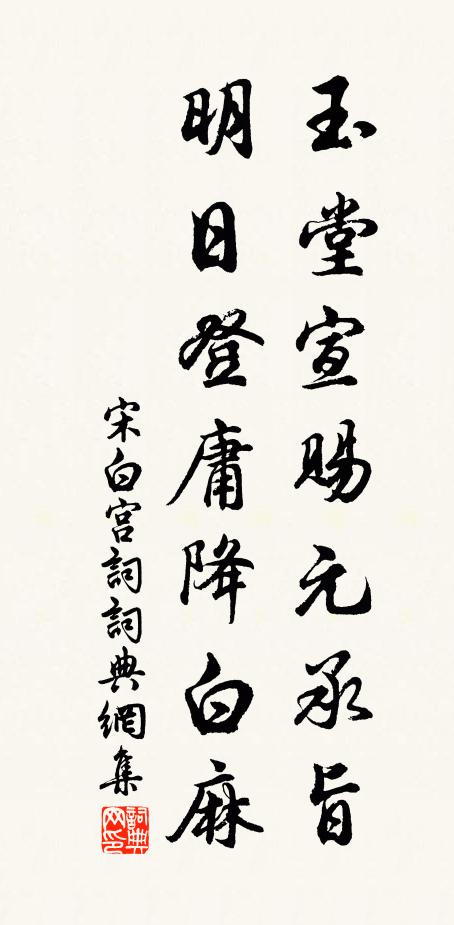 玉堂宣賜元承旨
明日登庸降白麻
宋白宮詞詞典網集
詞典网印